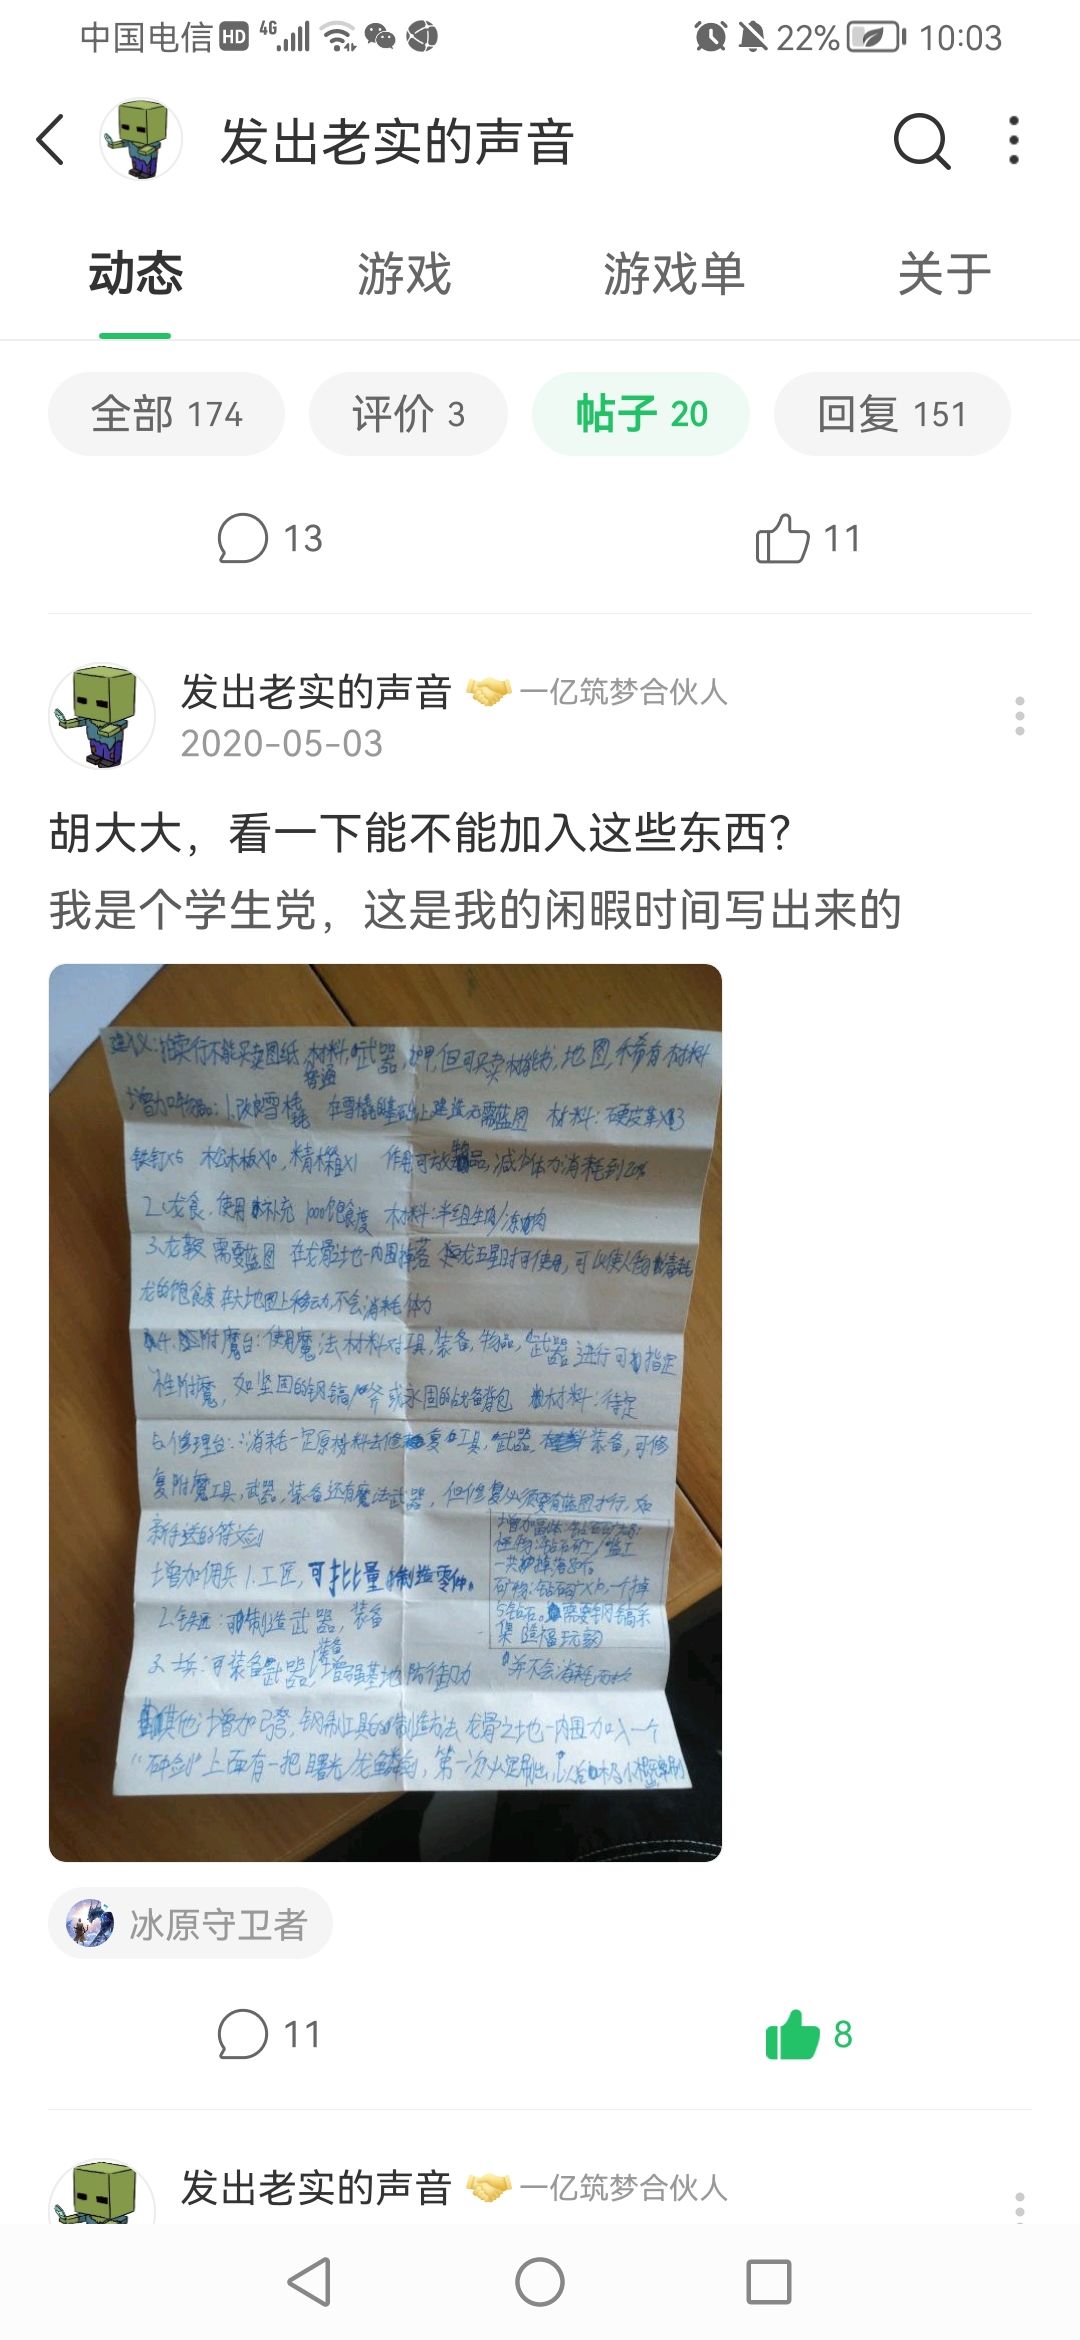 中国电信 HD 4G 22% 10:03
发出老实的声音
动态 游戏 游戏单 关于
全部 174 评价 3 帖子 20 回复 151
13 11
发出老实的声音 一亿筑梦合伙人
2020-05-03
胡大大，看一下能不能加入这些东西？
我是个学生党，这是我的闲暇时间写出来的
建议：拍卖行不能买卖图纸，材料，武器，护甲，但可买卖技能书，地图，稀有材料
普通
增加物品：1.改良雪橇 在雪橇的基础上建造无需蓝图 材料：硬皮革X3
铁钉X5 松木板X10，精木箱X1 作用可放物品，减少体力消耗到20%
2.龙食，使用补充1000饱食度 材料：半组生肉/冻肉
3.龙鞍 需要蓝图 在龙骨之地-内围掉落 龙五星时可使用，可以使人物消耗
龙的饱食度在大地图上移动，不会消耗体力
4.附魔台：使用魔法材料对工具，装备，物品，武器进行可指定
性附魔，如坚固的钢镐/斧 或永固的战备背包 材料：待定
5.修理台：消耗一定原材料去修复工具，武器，装备，可修
复附魔工具，武器，装备还有魔法武器，但修复必须要有蓝图才行，如
新手送的符文剑
增加佣兵 1.工匠，可批量制造零件。
2.铁匠：可制造武器，装备
3.士兵：可装备武器/装备 增强基地防御力
增加副本：钻石矿场：
怪物：钻石矿工/监工
一共掉落80个。
矿物：钻石矿X10，一个掉
5钻石。需要钢镐采
集 造福玩家
并不会消耗
其他：增加弓弩，钢制工具的制造方法 龙骨之地-内围加入一个
“碎剑”上面有一把曙光/龙鳞剑，第一次必定刷出，以后
冰原守卫者
11 8
发出老实的声音 一亿筑梦合伙人